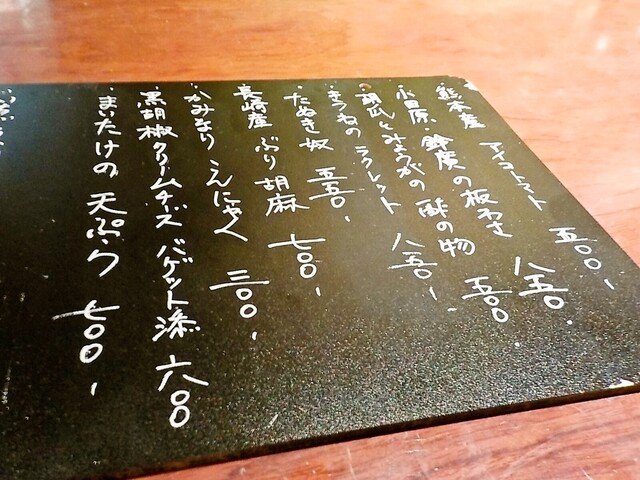 ・熊本産 アイコトマト 五〇〇、
・小田原・鈴廣の板わさ 八五〇、
・胡瓜とみょうがの酢の物 五〇〇、
・きつねのラクレット 八五〇、
・たぬき奴 五五〇、
・長崎産 ぶり胡麻 七〇〇、
・かみなりこんにゃく 三〇〇、
・黒胡椒クリームチーズ バゲット添 六八〇
・まいたけの天ぷら 七〇〇、